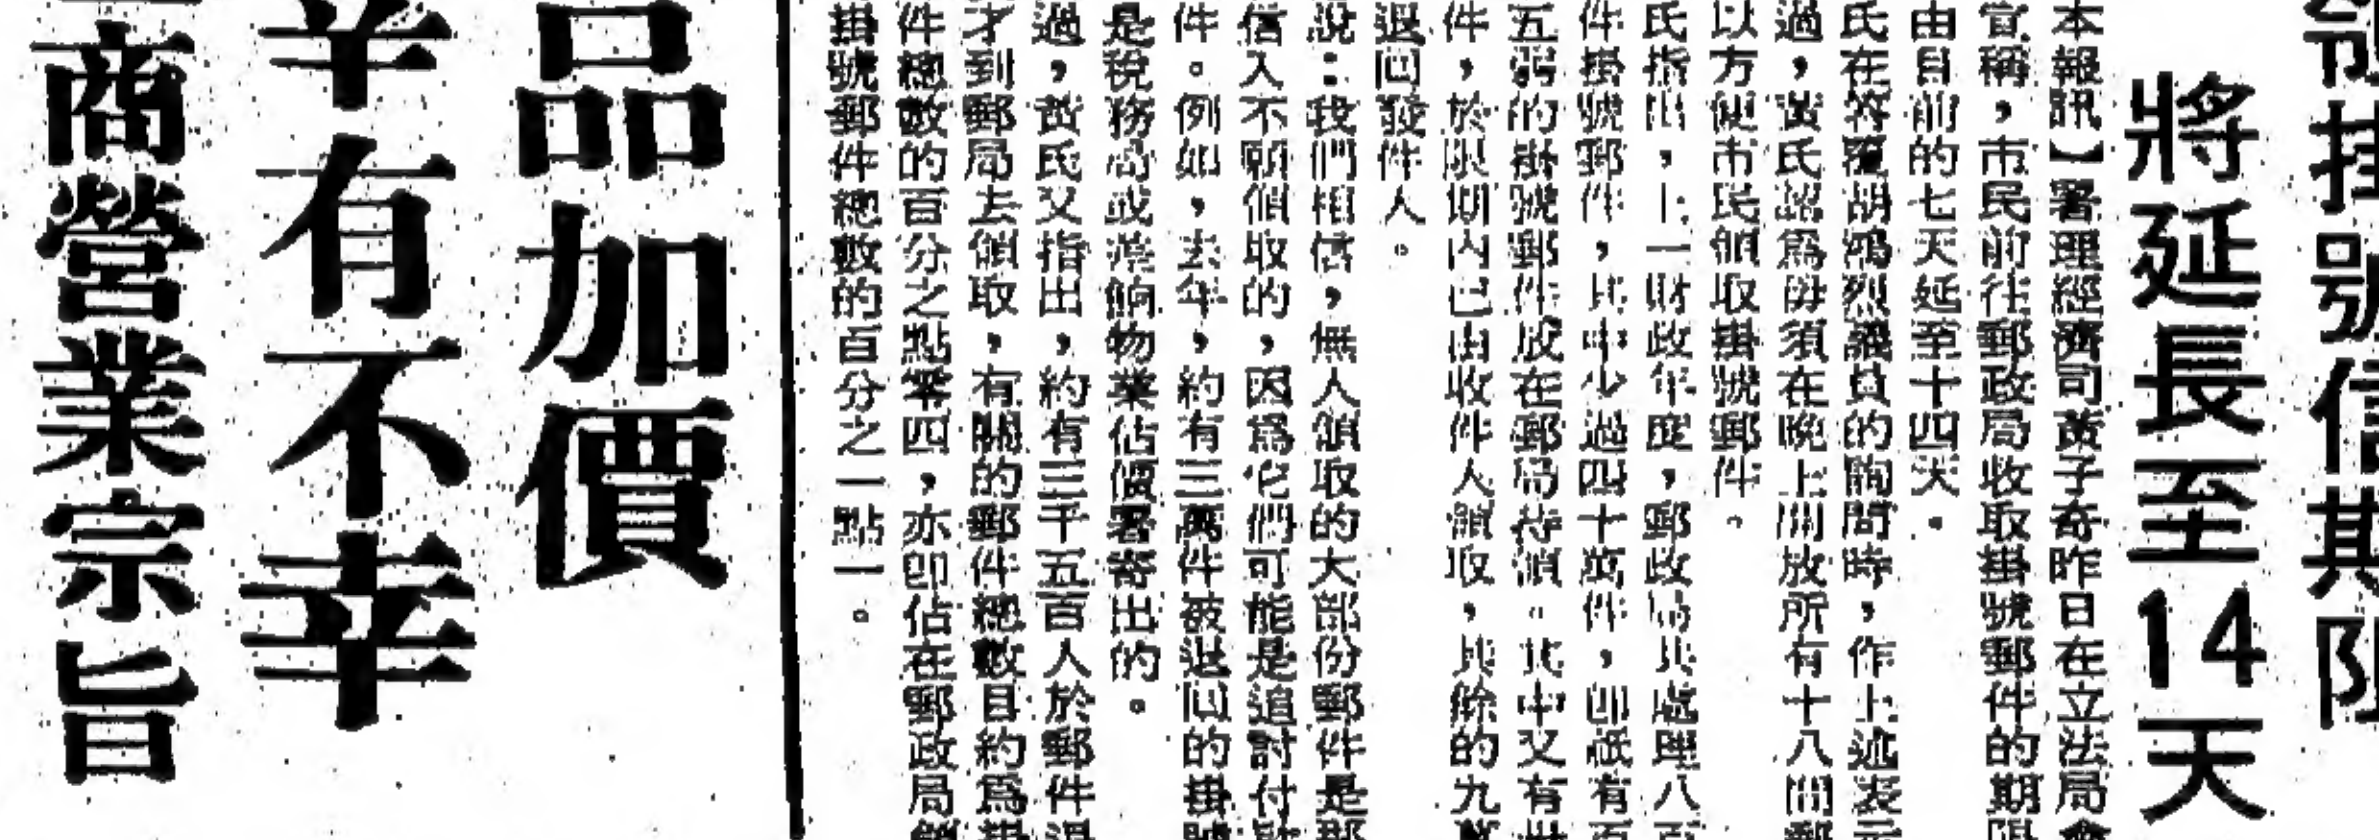 領掛號信期限
將延長至14天
本報訊】署理經濟司黃子奇昨日在立法局會
宣稱，市民前往郵政局收取掛號郵件的期限
由目前的七天延至十四天。
氏在答覆胡鴻烈議員的詢問時，作上述表示
過，黃氏認爲毋須在晚上開放所有十八間郵
以方便市民領取掛號郵件。
氏指出，上一財政年度，郵政局共處理八百
件掛號郵件，其中少過四十萬件，即祇有百
五弱的掛號郵件放在郵局待領。其中又有卅
件，於限期內已由收件人領取，其餘的九萬
退回發件人。
說：我們相信，無人領取的大部份郵件是郡
信入不願領取的，因爲它們可能是追討付
件。例如，去年，約有三萬件被退回的掛號
是稅務局或差餉物業估價署寄出的。
過，黃氏又指出，約有三千五百人於郵件過
才到郵局去領取，有關的郵件總數目約爲掛
件總數的百分之點零四，亦即佔在郵政局
掛號郵件總數的百分之一點一。
品加價
有不幸
商營業宗旨